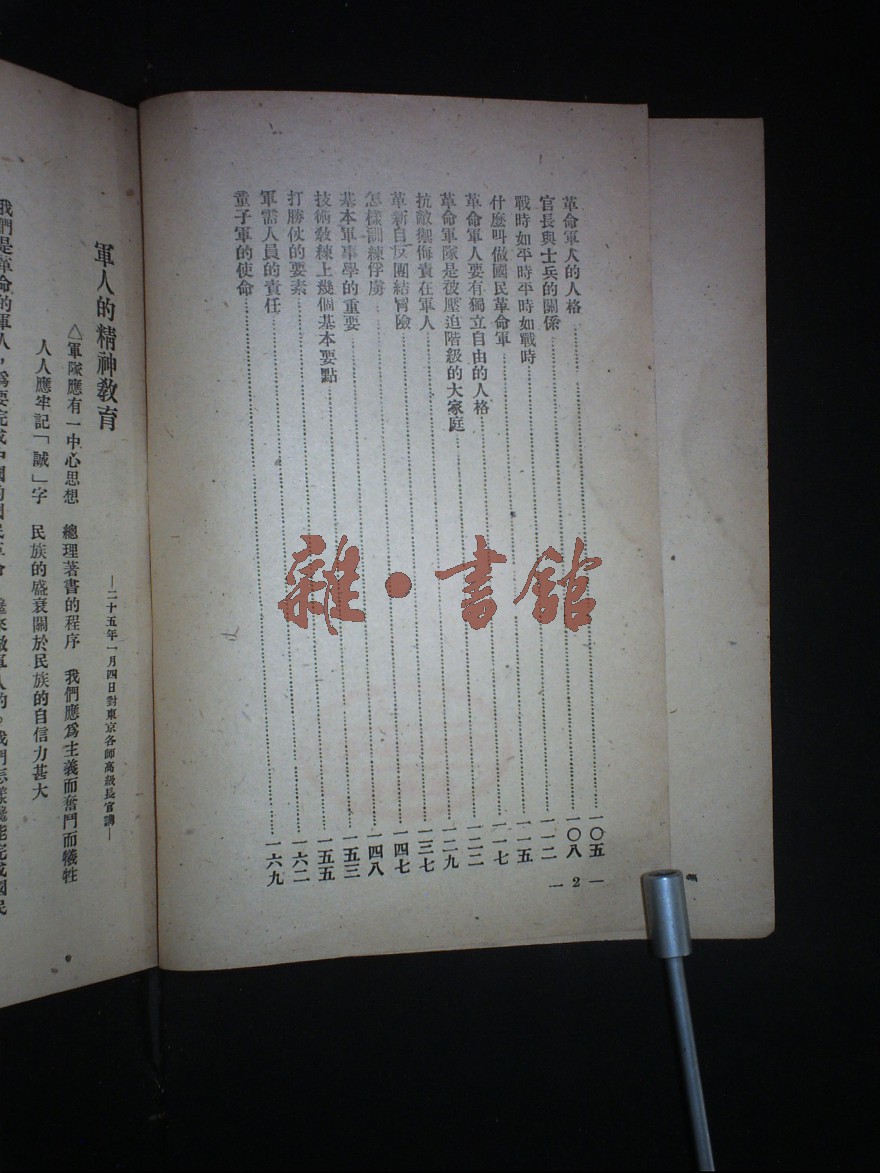 革命軍人的人格……一〇五
官長與士兵的關係……一〇八
戰時如平時平時如戰時……一一二
什麼叫做國民革命軍……一一五
革命軍人要有獨立自由的人格……一一七
革命軍隊是被壓迫階級的大家庭……一二二
抗敵禦侮責在軍人……一二九
革新自反團結冒險……一三七
怎樣訓練俘虜……一四七
基本軍事學的重要……一四八
技術教練上幾個基本要點……一五三
打勝仗的要素……一五五
軍需人員的責任……一六二
童子軍的使命……一六九
— 2 —
軍人的精神教育
—二十五年一月四日對東京各師高級長官講—
△軍隊應有一中心思想 總理著書的程序 我們應爲主義而奮鬥而犧牲
人人應牢記「誠」字 民族的盛衰關於民族的自信力甚大
我們是革命的軍人，爲要完成中國的國民革命
雜·書館